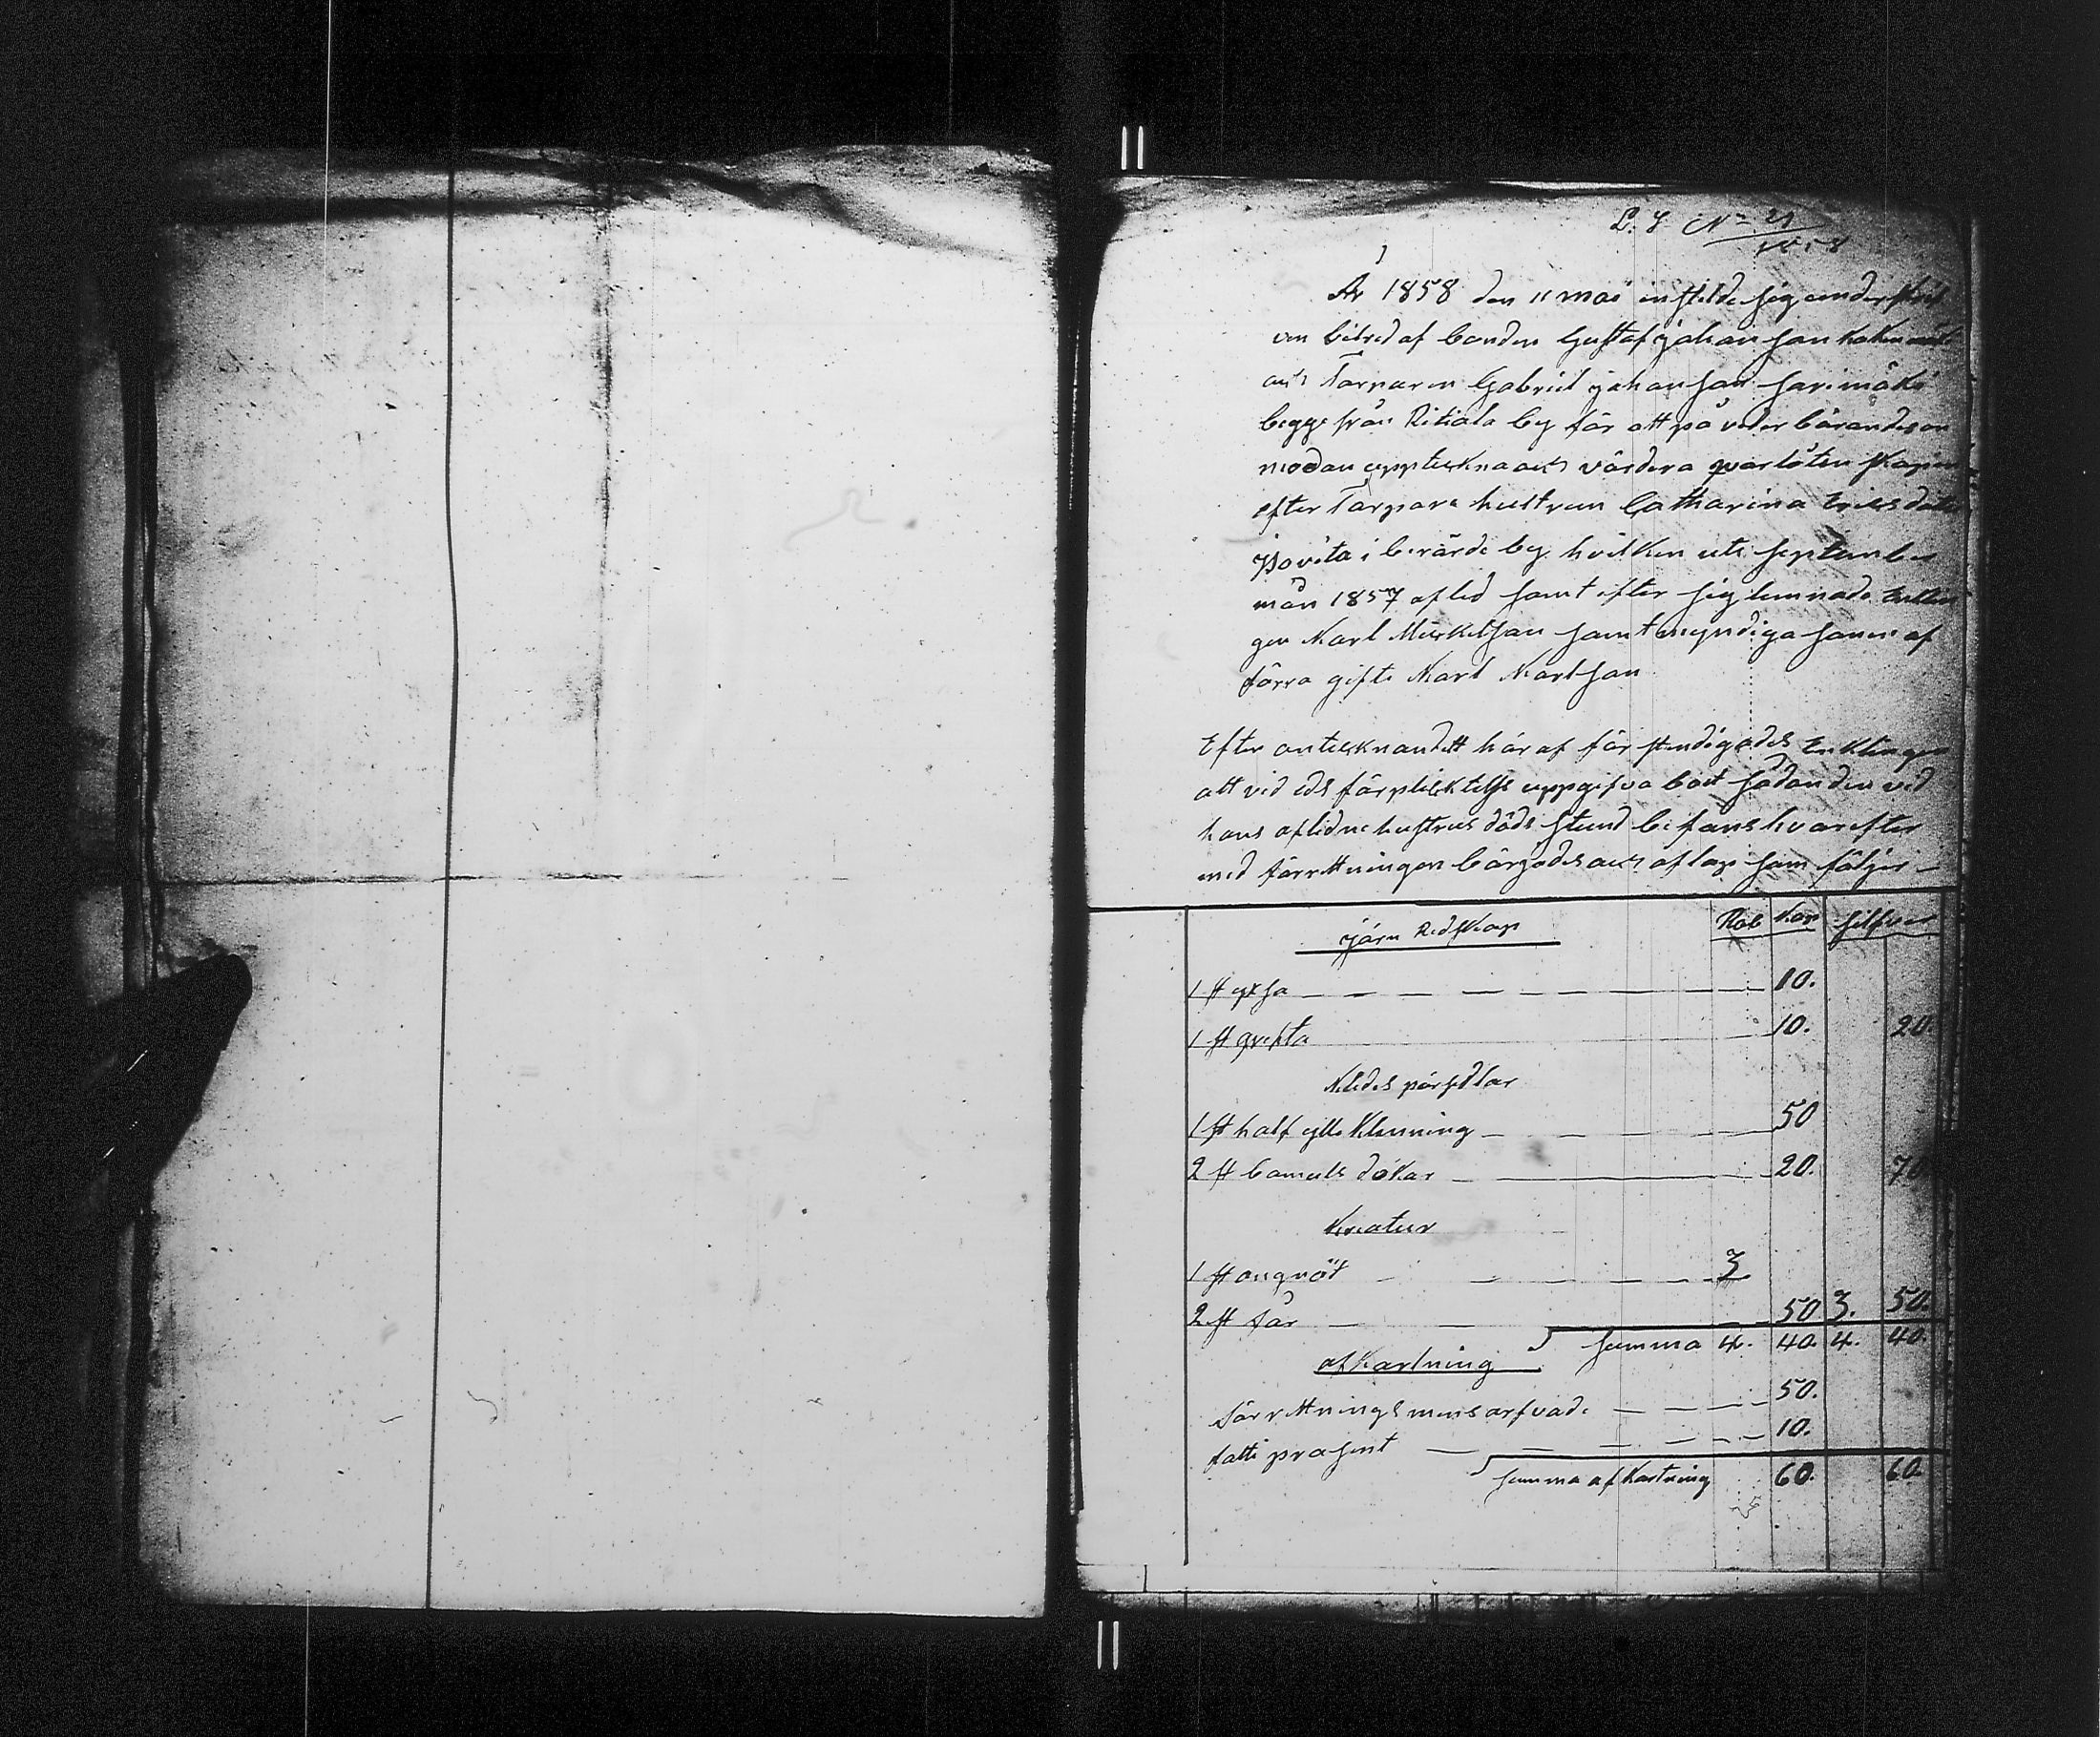 L. J. No 21
1858
År 1858 den 11 mai instelde sig underskrif
ven bitred af bonden Gustaf johan son
ock Torparen Gabriel johan son harimäki
begge från Ritiala by för att på veder börandes an
modan uppteckna ock värdera qvarlåtenskapen
efter Torpare hustrun Catharina Eriks dotter
Hovita i berörde by hvilken uti september
mån 1857 afled samt efter sig lemnade Enklin
gen Karl Mickelson samt myndiga sonen af
förra gifte Karl Karlson
Efter antecknandett här af för stendigades Enklingen
att vid eds förplicktelse uppgifva boet sådan den vid
hans aflidne hustrus döds stund befans hvarefter
med förrettningen börjades ock aflop som följer
järn Redskap Rub Kop silfver
1 st yxsa 10.
1 st grefta 10. 20.
Kledes pärsedlar
1 st half ylle Klenning 50
2 st bomuls dökar 20. 70
Kreatur
1 st ungnöt 3
2 st får 50 3. 50.
summa 4. 40. 4. 40.
afkortning
förrettnings mens arfvode 50.
fatti prosent 10.
summa afkortning 60. 60.